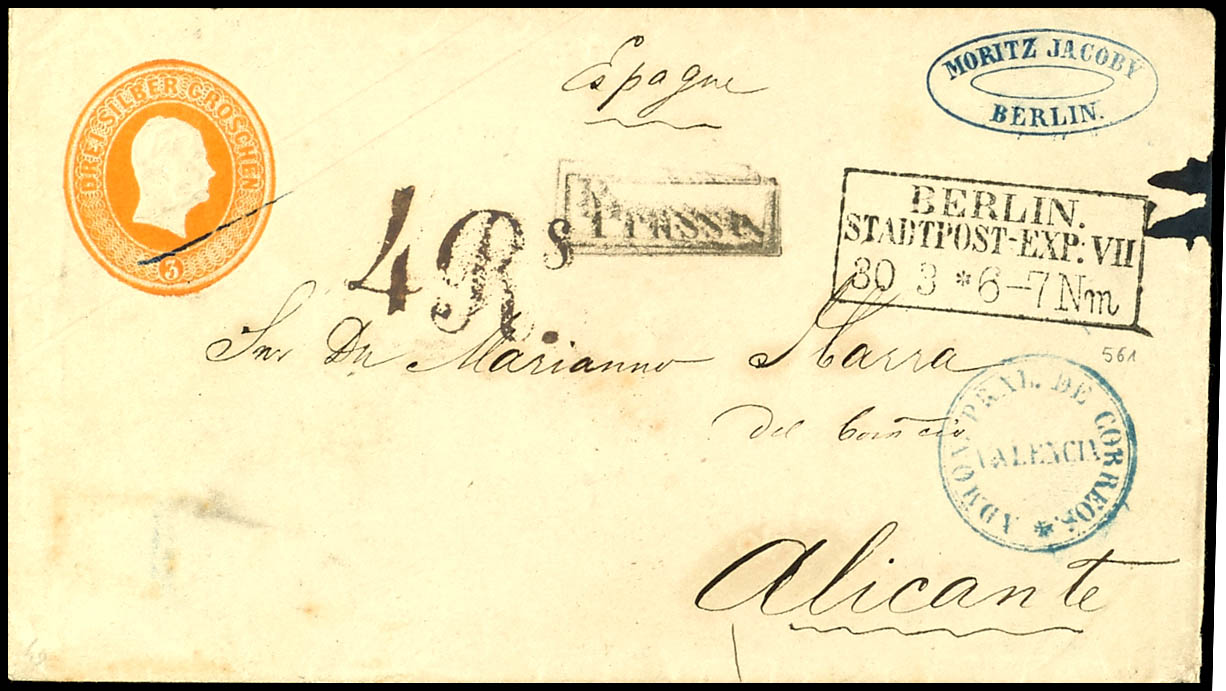 DREI SILBER GROSCHEN
3
Espagne
MORITZ JACOBY
BERLIN.
BERLIN.
STADTPOST-EXP: VII
30 3 * 6-7 Nm
4 Rs.
Marianno
561
del
ADMON. PRAL. DE CORREOS. *
VALENCIA
Alicante